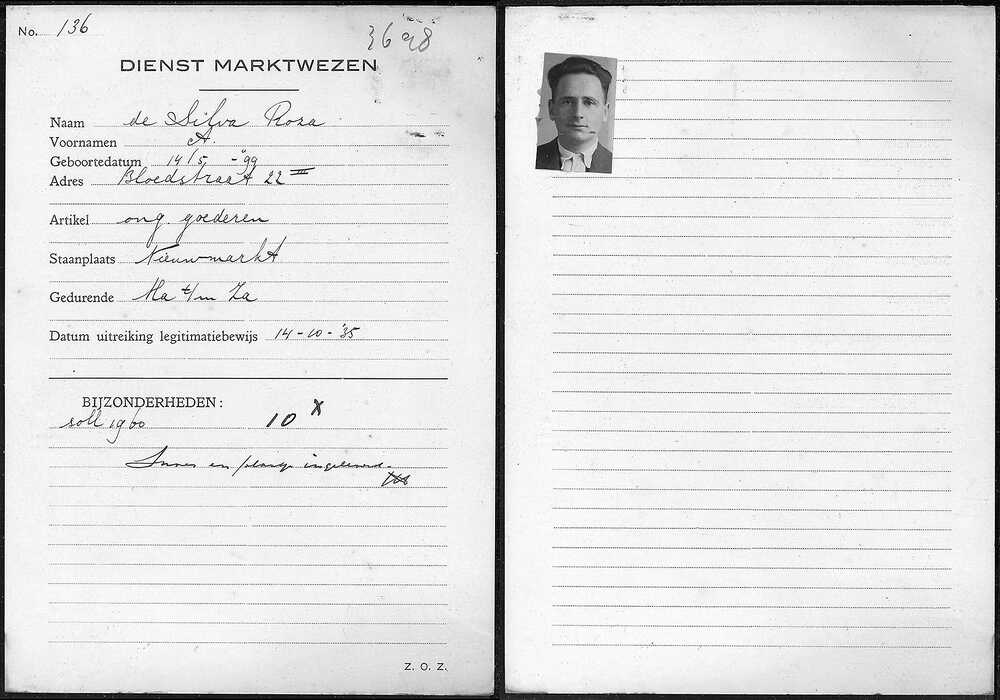 No. 136
3698
DIENST MARKTWEZEN
Naam de Silva Roza
Voornamen A.
Geboortedatum 14/5 - '99
Adres Bloedstraat 22 III
Artikel ong. goederen
Staanplaats Nieuwmarkt
Gedurende Ma t/m Za
Datum uitreiking legitimatiebewijs 14-10-'35
BIJZONDERHEDEN:
soll 1960 10 x
en ingeleverd.
Z. O. Z.